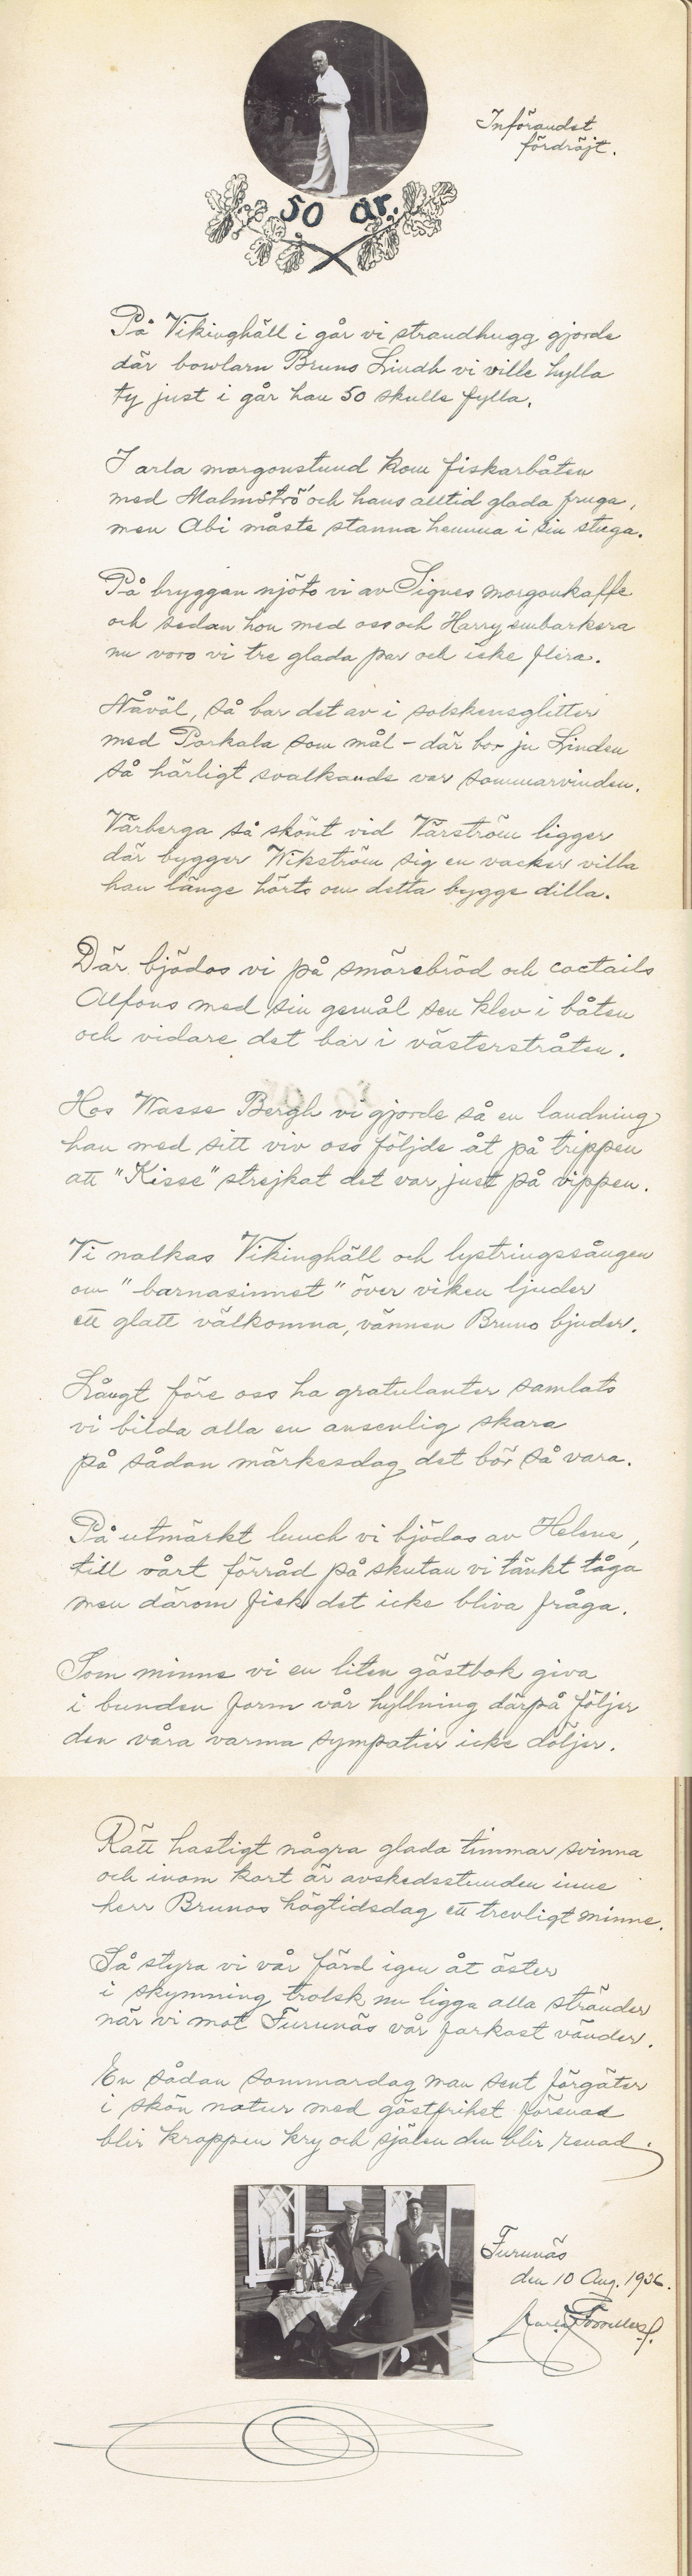 Införandet
fördröjt.
50 år.
På Vikinghäll i går vi strandhugg gjorde
där bowlarn Bruno Lindh vi ville hylla
ty just i går han 50 skulle fylla.
I arla morgonstund kom fiskarbåten
med Malmströ' och hans alltid glada fruga,
men Abi måste stanna hemma i sin stuga.
På bryggan njöto vi av Signes morgonkaffe
och sedan hon med oss och Harry embarkera
nu voro vi tre glada par och icke flera.
Nåväl, så bar det av i solskensglitter
med Porkala som mål – där bor ju Linden
så härligt svalkande var sommarvinden.
Vårberga så skönt vid Vårström ligger
där bygger Wikström sig en vacker villa
han länge hörts om detta bygge dilla.
Där bjödos vi på smörebröd och coctails
Alfons med sin gemål sen klev i båten
och vidare det bar i västerstråten.
Hos Wasse Bergh vi gjorde så en landning
han med sitt viv oss följde åt på trippen
att "Kisse" strejkat det var just på vippen.
Vi nalkas Vikinghäll och lystringssången
om "barnasinnet" över viken ljuder
ett glatt välkomna, vännen Bruno bjuder.
Långt före oss ha gratulanter samlats
vi bilda alla en ansenlig skara
på sådan märkesdag det bör så vara.
På utmärkt lunch vi bjödos av Helene,
till vårt förråd på skutan vi tänkt tåga
men därom fick det icke bliva fråga.
Som minne vi en liten gästbok giva
i bunden form vår hyllning därpå följer
den våra varma sympatier icke döljer.
Rätt hastigt några glada timmar svinna
och inom kort är avskedsstunden inne
herr Brunos högtidsdag ett trevligt minne.
Så styra vi vår färd igen åt öster
i skymning trolsk nu ligga alla stränder
när vi mot Furunäs vår farkost vänder.
En sådan sommardag man sent förgäter
i skön natur med gästfrihet förenad
blir kroppen kry och själen den blir renad.
Furunäs
den 10 Aug. 1936.